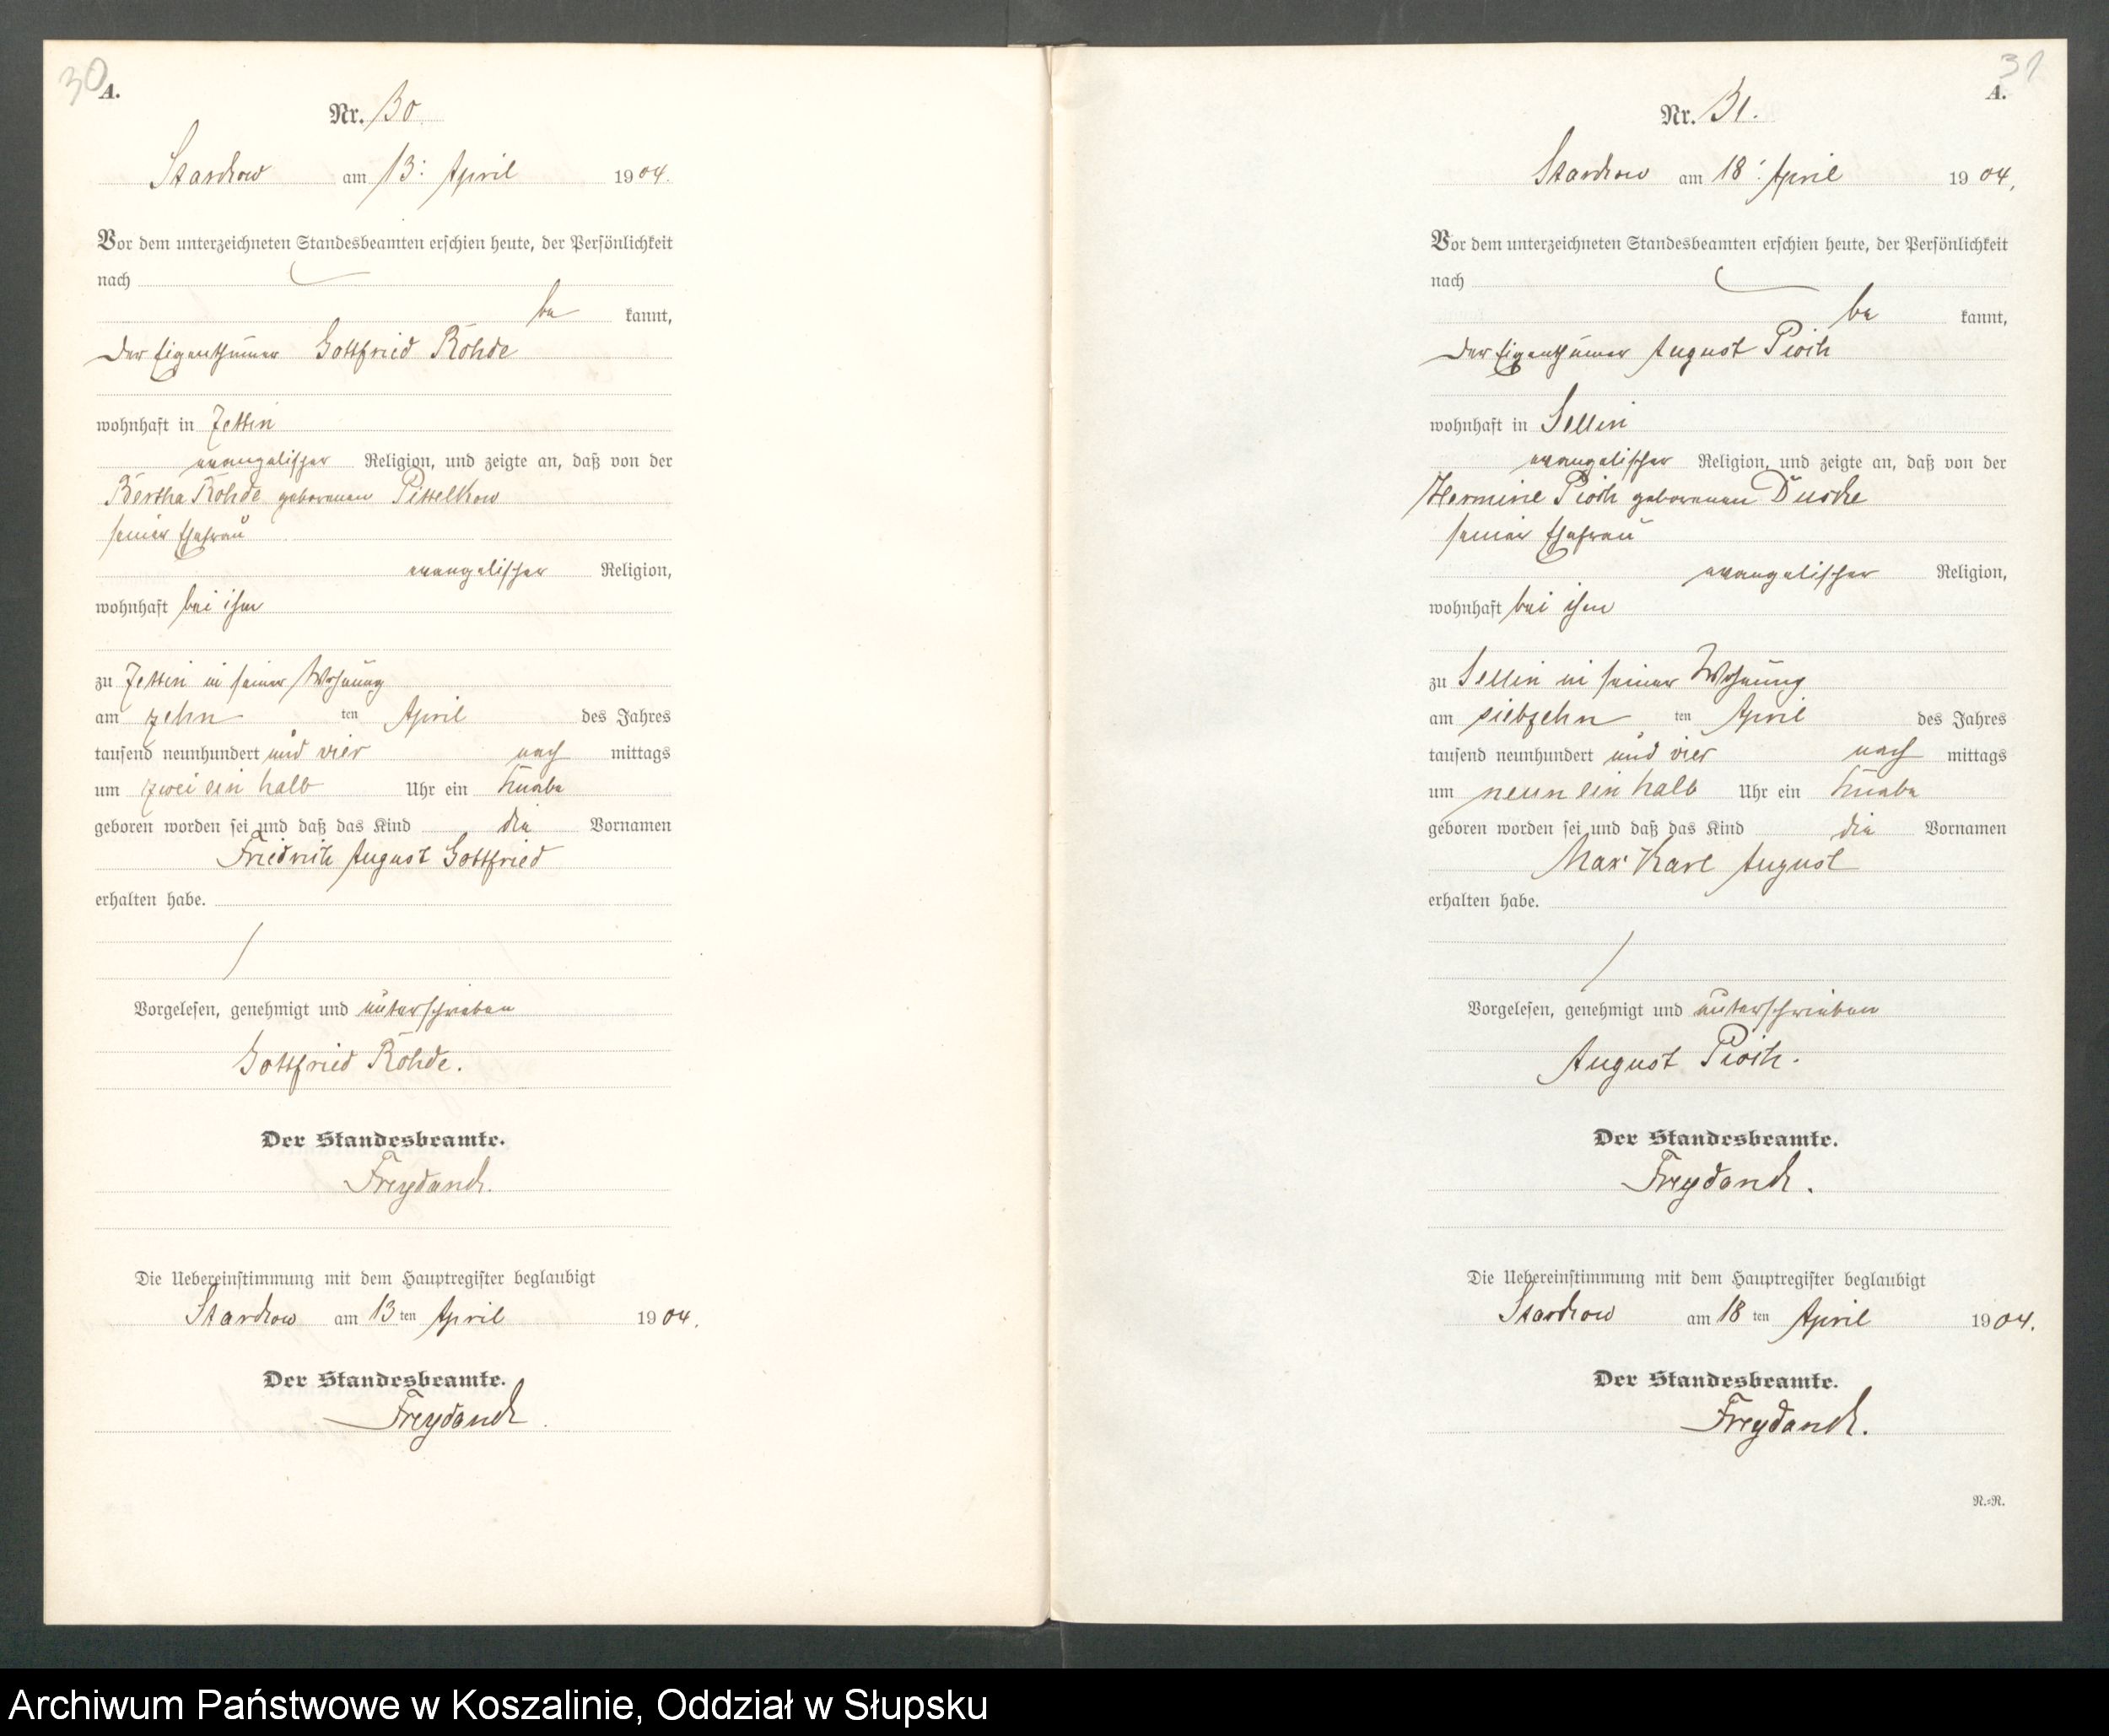 30
A.
Nr. 30
Starckow am 13: April 1904.
Vor dem unterzeichneten Standesbeamten erschien heute, der Persönlichkeit
nach
be kannt,
der Eigenthümer Gottfried Rohde
wohnhaft in Zettin
evangelischer Religion, und zeigte an, daß von der
Bertha Rohde geborenen Pittelkow
seiner Ehefrau
evangelischer Religion,
wohnhaft bei ihm
zu Zettin in seiner Wohnung
am zehn ten April des Jahres
tausend neunhundert und vier nach mittags
um zwei ein halb Uhr ein Knabe
geboren worden sei und daß das Kind die Vornamen
Friedrich August Gottfried
erhalten habe.
Vorgelesen, genehmigt und unterschrieben
Gottfried Rohde.
Der Standesbeamte.
Freydanck.
Die Uebereinstimmung mit dem Hauptregister beglaubigt
Starckow am 13 ten April 1904.
Der Standesbeamte.
Freydanck.
31
A.
Nr. 31.
Starckow am 18: April 1904.
Vor dem unterzeichneten Standesbeamten erschien heute, der Persönlichkeit
nach
be kannt,
der Eigenthümer August Pioch
wohnhaft in Sellin
evangelischer Religion, und zeigte an, daß von der
Hermine Pioch geborenen Duske
seiner Ehefrau
evangelischer Religion,
wohnhaft bei ihm
zu Sellin in seiner Wohnung
am siebzehn ten April des Jahres
tausend neunhundert und vier nach mittags
um neun ein halb Uhr ein Knabe
geboren worden sei und daß das Kind die Vornamen
Max Karl August
erhalten habe.
Vorgelesen, genehmigt und unterschrieben
August Pioch.
Der Standesbeamte.
Freydanck.
Die Uebereinstimmung mit dem Hauptregister beglaubigt
Starckow am 18 ten April 1904.
Der Standesbeamte.
Freydanck.
N.=R.
Archiwum Państwowe w Koszalinie, Oddział w Słupsku